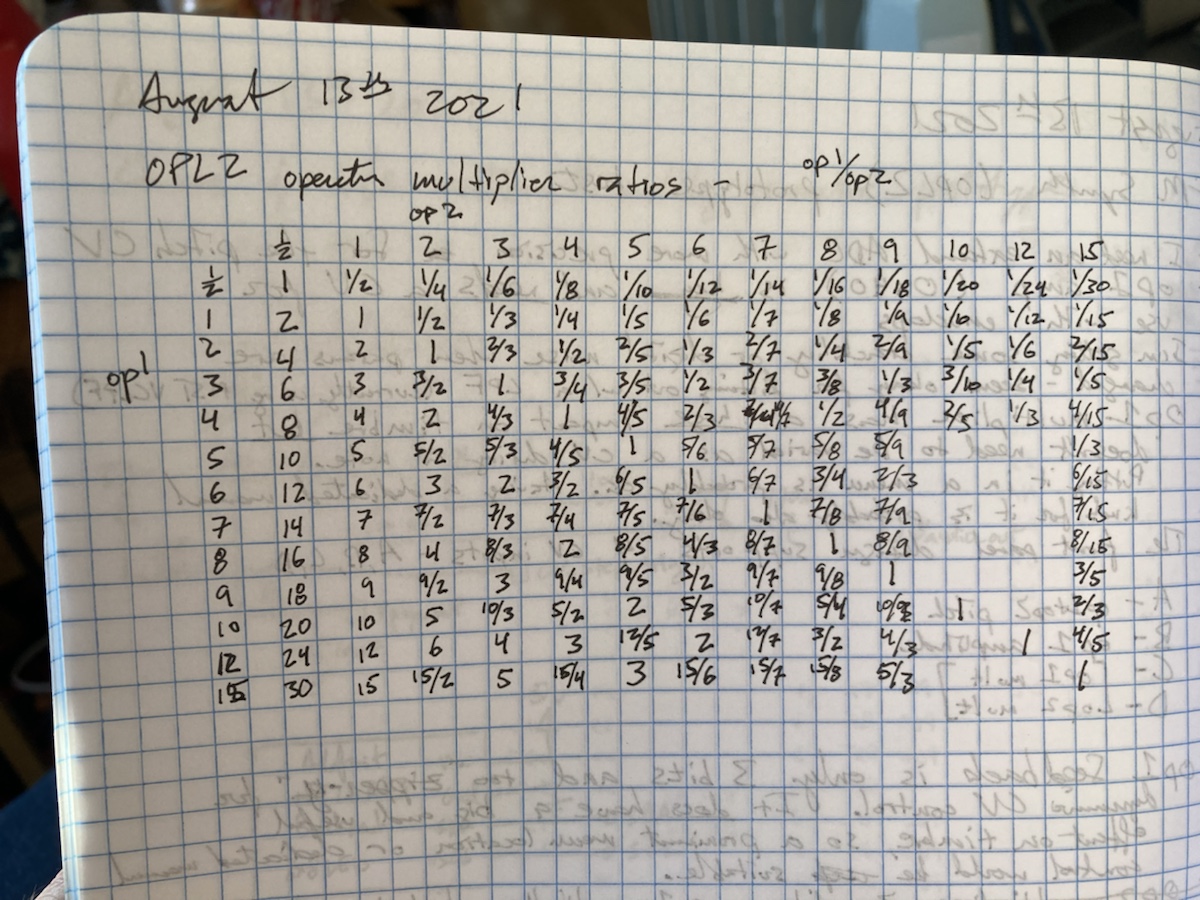 August 13th 2021
OPL2 operator multiplier ratios - op1/op2
op2
1/2 1 2 3 4 5 6 7 8 9 10 12 15
1/2 1 1/2 1/4 1/6 1/8 1/10 1/12 1/14 1/16 1/18 1/20 1/24 1/30
1 2 1 1/2 1/3 1/4 1/5 1/6 1/7 1/8 1/9 1/10 1/12 1/15
2 4 2 1 2/3 1/2 2/5 1/3 2/7 1/4 2/9 1/5 1/6 2/15
op1
3 6 3 3/2 1 3/4 3/5 1/2 3/7 3/8 1/3 3/10 1/4 1/5
4 8 4 2 4/3 1 4/5 2/3 4/7 1/2 4/9 2/5 1/3 4/15
5 10 5 5/2 5/3 4/5 1 5/6 5/7 5/8 5/9 1/3
6 12 6 3 2 3/2 6/5 1 6/7 3/4 2/3 6/15
7 14 7 7/2 7/3 7/4 7/5 7/6 1 7/8 7/9 7/15
8 16 8 4 8/3 2 8/5 4/3 8/7 1 8/9 8/15
9 18 9 9/2 3 9/4 9/5 3/2 9/7 9/8 1 3/5
10 20 10 5 10/3 5/2 2 5/3 10/7 5/4 10/9 1 2/3
12 24 12 6 4 3 12/5 2 12/7 3/2 4/3 1 4/5
15 30 15 15/2 5 15/4 3 15/6 15/7 15/8 5/3 1